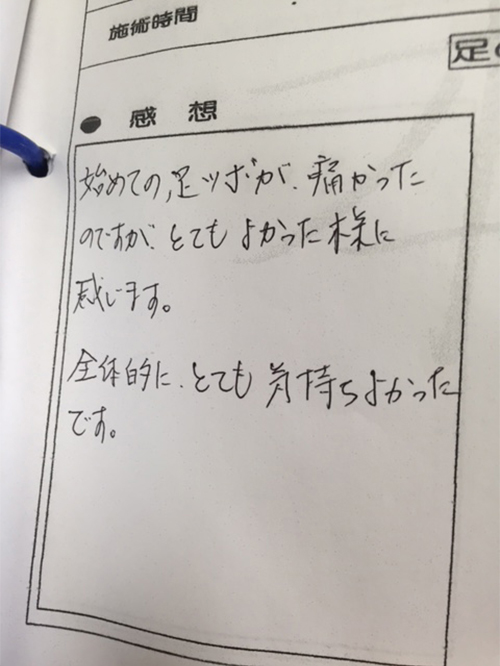 施術時間
足
● 感想
始めての,足ツボが、痛かった
のですが、とてもよかった様に
感じます。
全体的に、とても気持ちよかった
です。